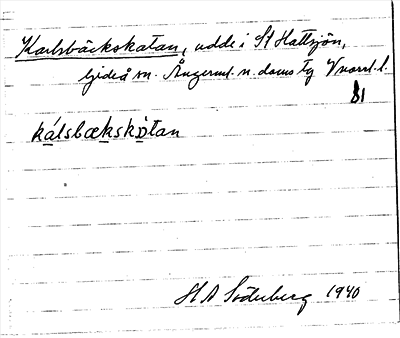 Karlsbäckskatan, udde i St Hallsjön,
Gideå sn. Ångerml. n. doms tg Vnorrl. l.
81
kálsbækskòtan
H A Söderberg 1940